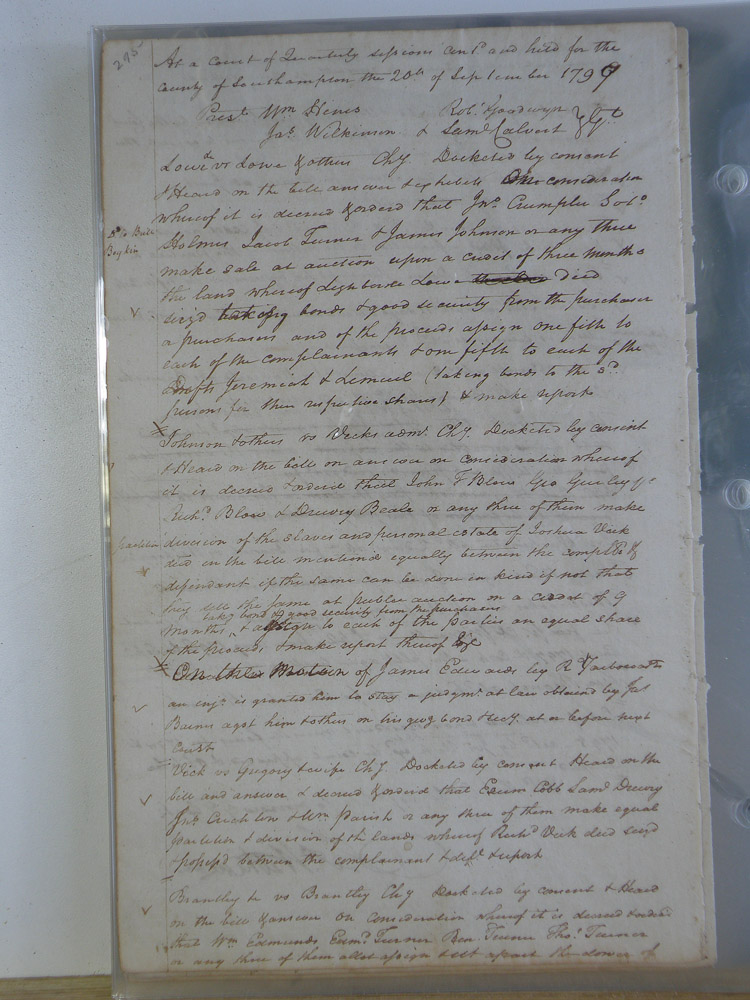 295
At a Court of Quarterly sessions contd and held for the
County of Southampton the 20th of September 1799
Prest Wm Hines Robt Goodwyn
Jas Wilkinson & Saml Calvert
Lowe vs Lowe & others Chy Docketed by consent
& Heard on the bill answer & exhibits On consideration
whereof it is decreed & orderd that Jno Crumpler
Do to Bride
Boykin
Holmes Jacob Turner & James Johnson or any three
make sale at auction upon a credit of three months
the land whereof Lowe died
seizd taking bonds & good security from the purchaser
or purchasers and of the proceeds assign one fifth to
each of the complainants & one fifth to each of the
Defts Jeremiah & Lemuel (taking bonds to the sd
persons for their respective shares) & make report
Johnson & others vs Vicks admr Chy Docketed by consent
& Heard on the bill on answer on consideration whereof
it is decreed & orderd that John F Blow Geo Gurley
Richd Blow & Drewry Beale or any three of them make
division of the slaves and personal estate of Joshua Vick
decd in the bill mentiond equally between the complts &
defendant if the same can be done in kind if not that
they sell the same at public auction on a credit of 9
takg bond & good security from the purchasers
months & assign to each of the parties an equal share
of the proceeds & make report thereof
On the Motion of James Edwards by R
an injn is granted him to stay a judgmt at law obtaind by Jas
Barnes agst him & others on his bond & secy at or before next
Court
Vick vs Gregory & wife Chy Docketed by consent Heard on the
bill and answer & decreed & orderd that Exum Cobb Saml Drewry
Jno Crichlow & Wm Parish or any three of them make equal
partition & division of the lands whereof Richd Vick died seizd
& possessd between the complainant & deft & report
Brantley &c vs Brantley Chy Docketed by consent & Heard
on the bill & answer On consideration whereof it is decreed & orderd
that Wm Edmunds Exmd Turner Ben Turner Thos Turner
or any three of them allot assign & set apart the dower of